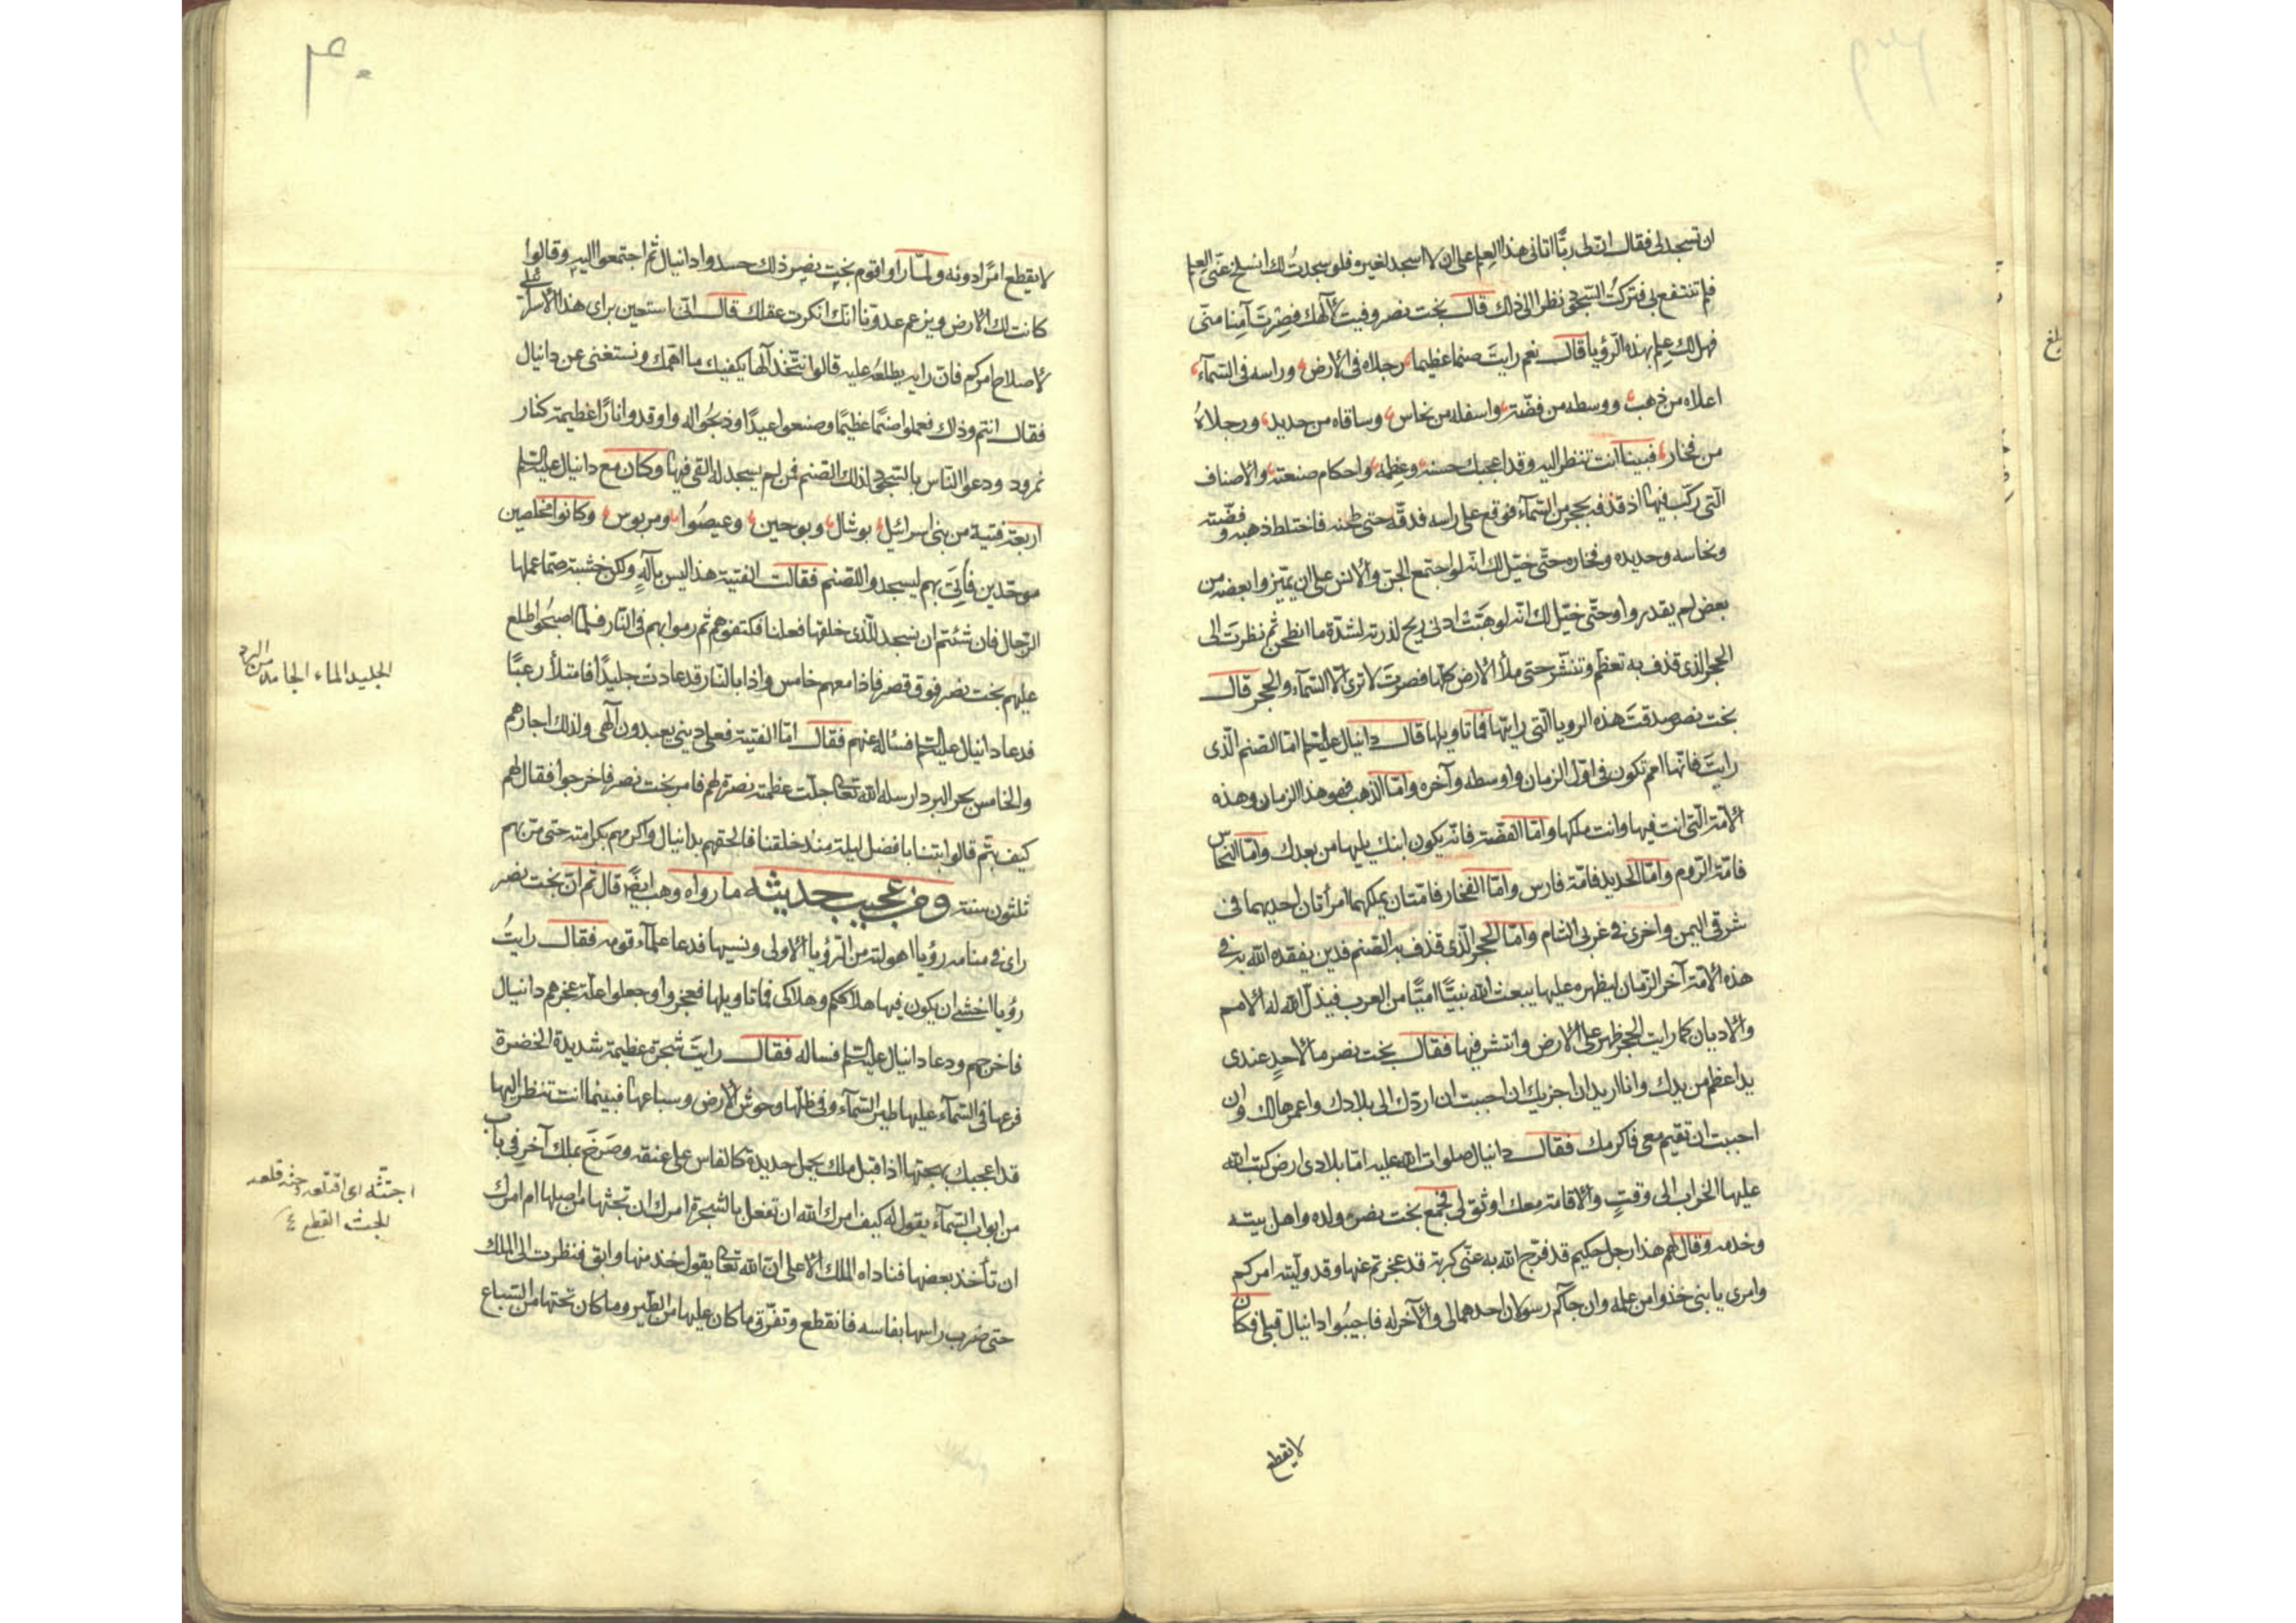 ان تسجد لى فقال ان لى ربًّا اتانى هذا العلم على ان لا اسجد لغيره فلو سجدتُ لك انسلخ عنّى العلم
فلم تنتفع بى فتركتُ السّجود نظرا الى ذلك قال بخت نصر وفيت لآلهك فصِرْتَ آمِنا منّى
فهل لك علم بهذه الرّؤيا قال نعم رايتَ صنما عظيما رجلاه فى الارض وراسه فى السّمآء
اعلاه من ذهب ووسطه من فضّة واسفله من نحاس وساقاه من حديد ورجلاهُ
من فخار فبينا انت تنظر اليه وقد اعجبك حسنه وعِظمه واحكام صنعته والاصناف
الّتى ركّب فيها اذ قذفه بحجر من السّمآء فوقع على راسه فدقّه حتى طحنه فاختلط ذهبه وفضّته
ونحاسه وحديده وفخاره حتّى خيّل لك انّه لو اجتمع الجنّ والانس على ان يميّزوا بعضه من
بعض لم يقدروا وحتّى خيّل لك انّه لو هبّت ادنى ريح لذرته لشدّة ما انطحن ثم نظرتَ الى
الحجر الذى قذف به تعظّم وتنشّر حتى ملأ الارض كلّها فصرتَ لا ترى الّا السّمآء والحجر قال
بخت نصر صدقتَ هذه الرويا الّتى رايتها فما تاويلها قال دانيال عليه السّلم امّا الصّنم الّذى
رايتَ فانّها امم تكون فى اوّل الزمان واوسطه وآخره وامّا الذّهب فهو هذا الزمان وهذه
الامّة الّتى انت فيها وانت ملكها وامّا الفضّة فانّه يكون ابنك يليها من بعدك وامّا النّحاس
فامّة الرّوم وامّا الحديد فامّة فارس وامّا الفخّار فامّتان يملكهما امرأتان احديهما فى
شرقى اليمن واخرى فى غربى الشام وامّا الحجر الّذى قذف به الصّنم فدين يفقده الله به فى
هذه الامّة آخر الزّمان ليظهره عليها يبعث الله نبيًّا اميًّا من العرب فيذلّ الله له الامم
والاديان كما رايت الحجر ظهر على الارض وانتشر فيها فقال بخت نصر ما لاحدٍ عندى
يد اعظم من يدك وانا اريد ان اجزيك ان احببت ان اردّك الى بلادك واعمرها لك وان
احببت ان تقيم معى فاكرمك فقال دانيال صلوات الله عليه امّا بلادى ارض كتب الله
عليها الخراب الى وقتٍ والاقامة معك اوثق لى فجمع بخت نصره ولده واهل بيته
وخدمه وقال لهم هذا رجل حكيم قد فرّج الله به عنّى كربة قد عجزتم عنها وقد وليّته امركم
وامرى يا بنى خذوا من علمه وان جآكم رسولان احدهما لى والآخر له فاجيبُوا دانيال قبلى فكان
لا يقطع
۴۰
لا يقطع امرًا دونه ولمّا راوا قوم بخت نصر ذلك حسدوا دانيال ثم اجتمعوا اليه وقالوا
كانت لك الارض ويزعم عدوّنا انّك انكرت عقلك قال انّى استعين براى هذا الاسرائلى
لاصلاح امركم فانّ رايه يطلعه عليه قالوا نتّخذ آلها يكفيك ما اهمّك ونستغنى عن دانيال
فقال انتم وذلك فعملوا صنمًا عظيمًا وصنعوا عيدًا وذبحُوا له واوقدوا نارًا عظيمة كنار
نمرود ودعوا النّاس بالسّجود لذلك الصّنم فمن لم يسجد له القى فيها وكان مع دانيال عليه السّلم
اربعة فتية من بنى اسرائيل بوشال وبوحين وعيصُوا ومربوس وكانوا مخلصين
موحّدين فأُتِىَ بهم ليسجدوا للصّنم فقالت الفتية هذا ليس بآلهٍ ولكن خشبة ممّا عملها
الرّجال فان شئتم ان نسجد للّذى خلقها فعلنا فكتفوهم ثم رموا بهم فى النّار فلمّا اصبحُوا طلع
عليهم بخت نصر فوق قصر فاذا معهم خامس واذا بالنّار قد عادت جليدًا فامتلأ رعبًا
فدعا دانيال عليه السّلم فسئاله عنهم فقال امّا الفتية فعلى دينى يعبدون آلهى ولذلك اجارهم
والخامس بحر البرد ارسله الله تعالى جلّت عظمته نصرة لهم فامر بخت نصر فاخرجوا فقال لهم
كيف بتّم قالوا بتنا بافضل ليلة منذ خلقنا فالحقهم بدانيال واكرمهم بكرامته حتى مرّ بهم
ثلثون سنة ومن عجيب حديثه ما رواه وهب ايضًا قال ثم انّ بخت نصر
راى فى منامه رؤيا اهولة من الرّؤيا الاولى ونسيها فدعا علمآء قومه فقال رايتُ
رؤيا اخشى ان يكون فيها هلاككم وهلاكى فما تاويلها فعجزوا وجعلوا علّة عجزهم دانيال
فاخرجهم ودعا دانيال عليه السّلم فساله فقال رايتَ شجرة عظيمة شديدة الخضرة
فرعها فى السّمآء عليها طير السّمآء وفى ظلّها وحوش الارض وسباعها فبينما انت تنظر اليها
قد اعجبك بهجتها اذ اقبل ملك يحمل حديدة كالفاس على عنقه وصَرَخَ بملك آخر فى باب
من ابواب السّمآء يقول له كيف امرك الله ان تفعل بالشّجرة امرك ان تجثها من اصلها ام امرك
ان تأخذ بعضها فناداه الملك الاعلى انّ الله تعالى يقول خذ منها وابق فنظرت الى الملك
حتى ضرب راسها بفاسه فانقطع وتفرّق ما كان عليها من الطّير وما كان تحتها من السّباع
الجليد الماء الجامد من البرد
اجتثه اى اقتلعه وجثه قلعه
الجث القطع
بلغ